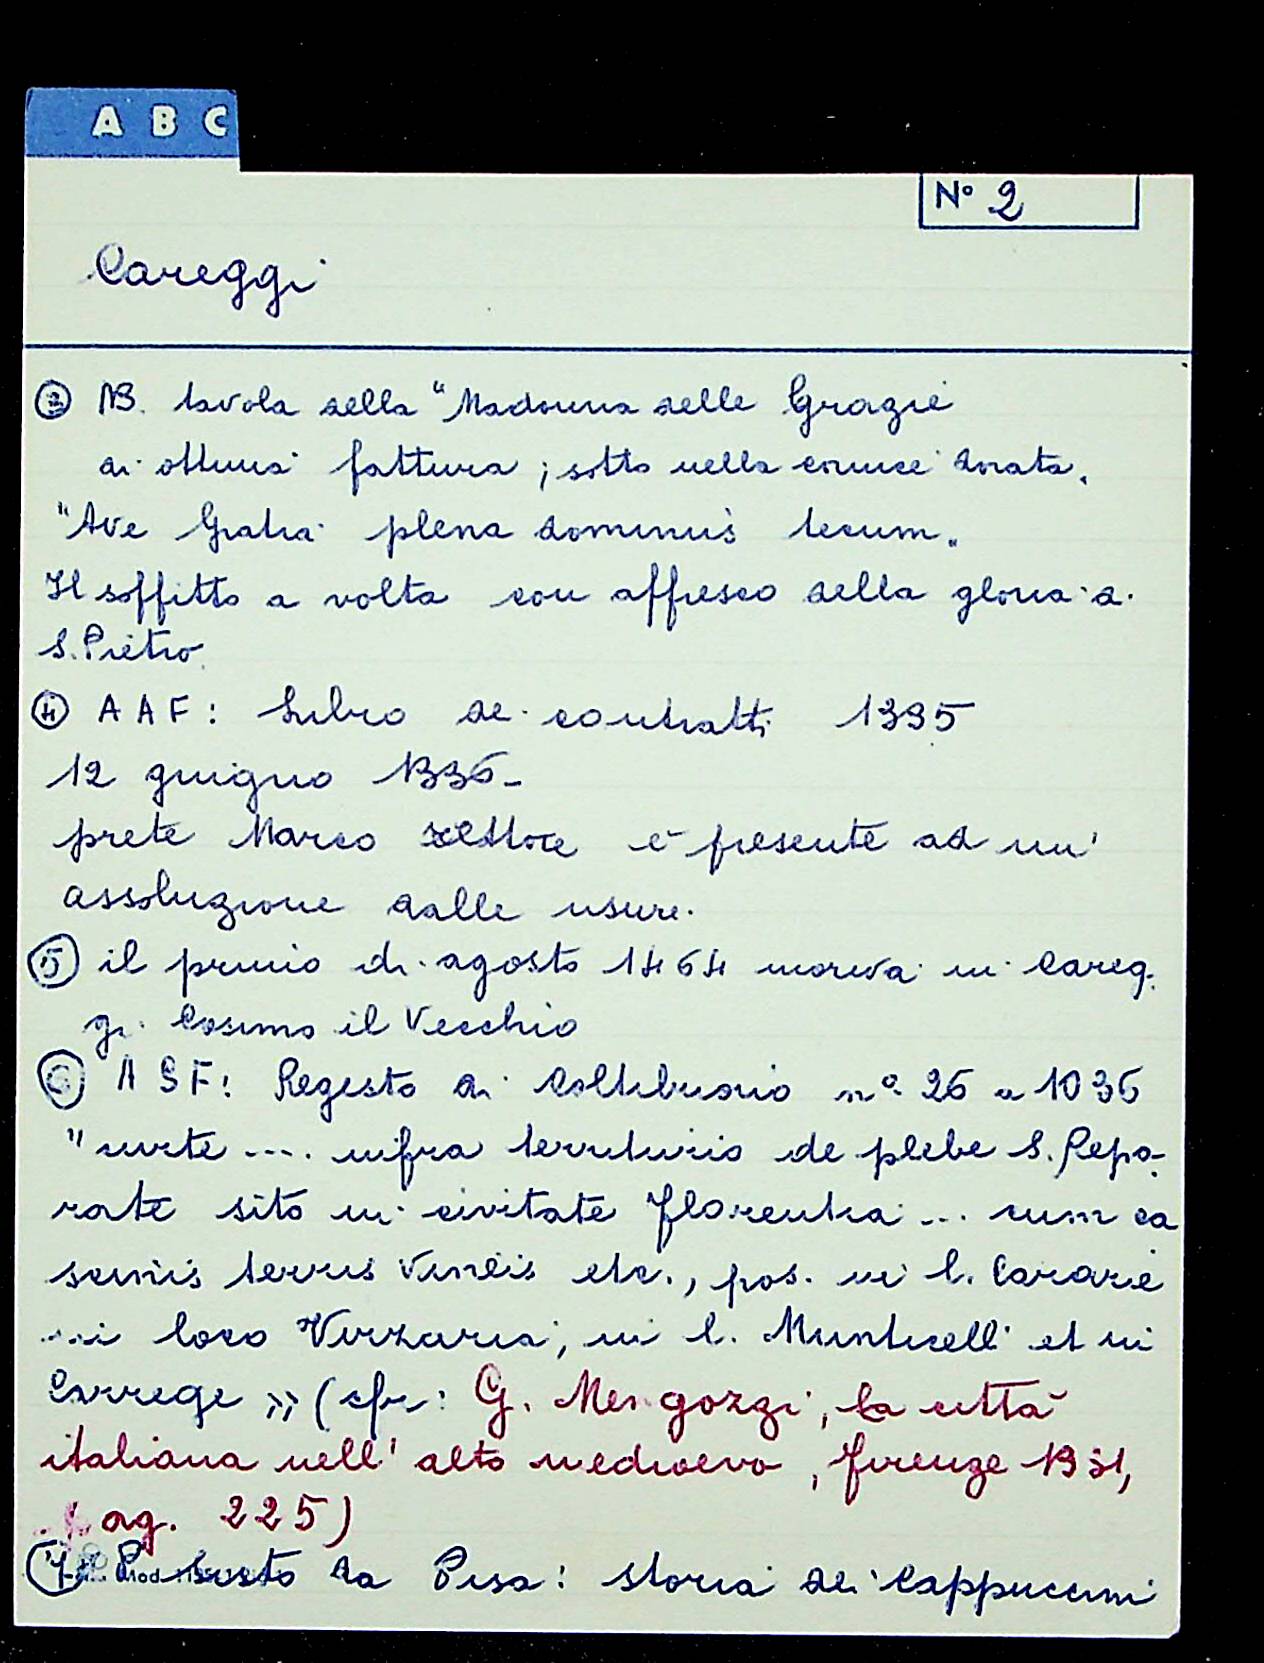 A B C
N° 2
Careggi
③ NB. tavola della "Madonna delle Grazie
di ottima fattura ; sotto nella cornice dorata.
"Ave Gratia plena dominus tecum"
Il soffitto a volta con affresco della gloria di
S. Pietro
④ AAF: Libro di contratti 1335
12 giugno 1336-
prete Marco rettore è presente ad un'
assoluzione dalle usure.
⑤ il primo di agosto 1464 moriva in Careg-
gi Cosimo il Vecchio
⑥ ASF: Regesto di Coltibuono n° 26 a 1036
" infra territurio de plebe S. Repa-
rate sito in civitate Florentia ... cum ca
sis terris vineis etc., pos. in l. Cararie
in loco Virzaria, in l. Munticelli et in
Carrege » (cfr: G. Mengozzi, la città
italiana nell'alto medioevo, firenze 1931,
pag. 225)
⑦ P. Sisto da Pisa: storia dei Cappuccini